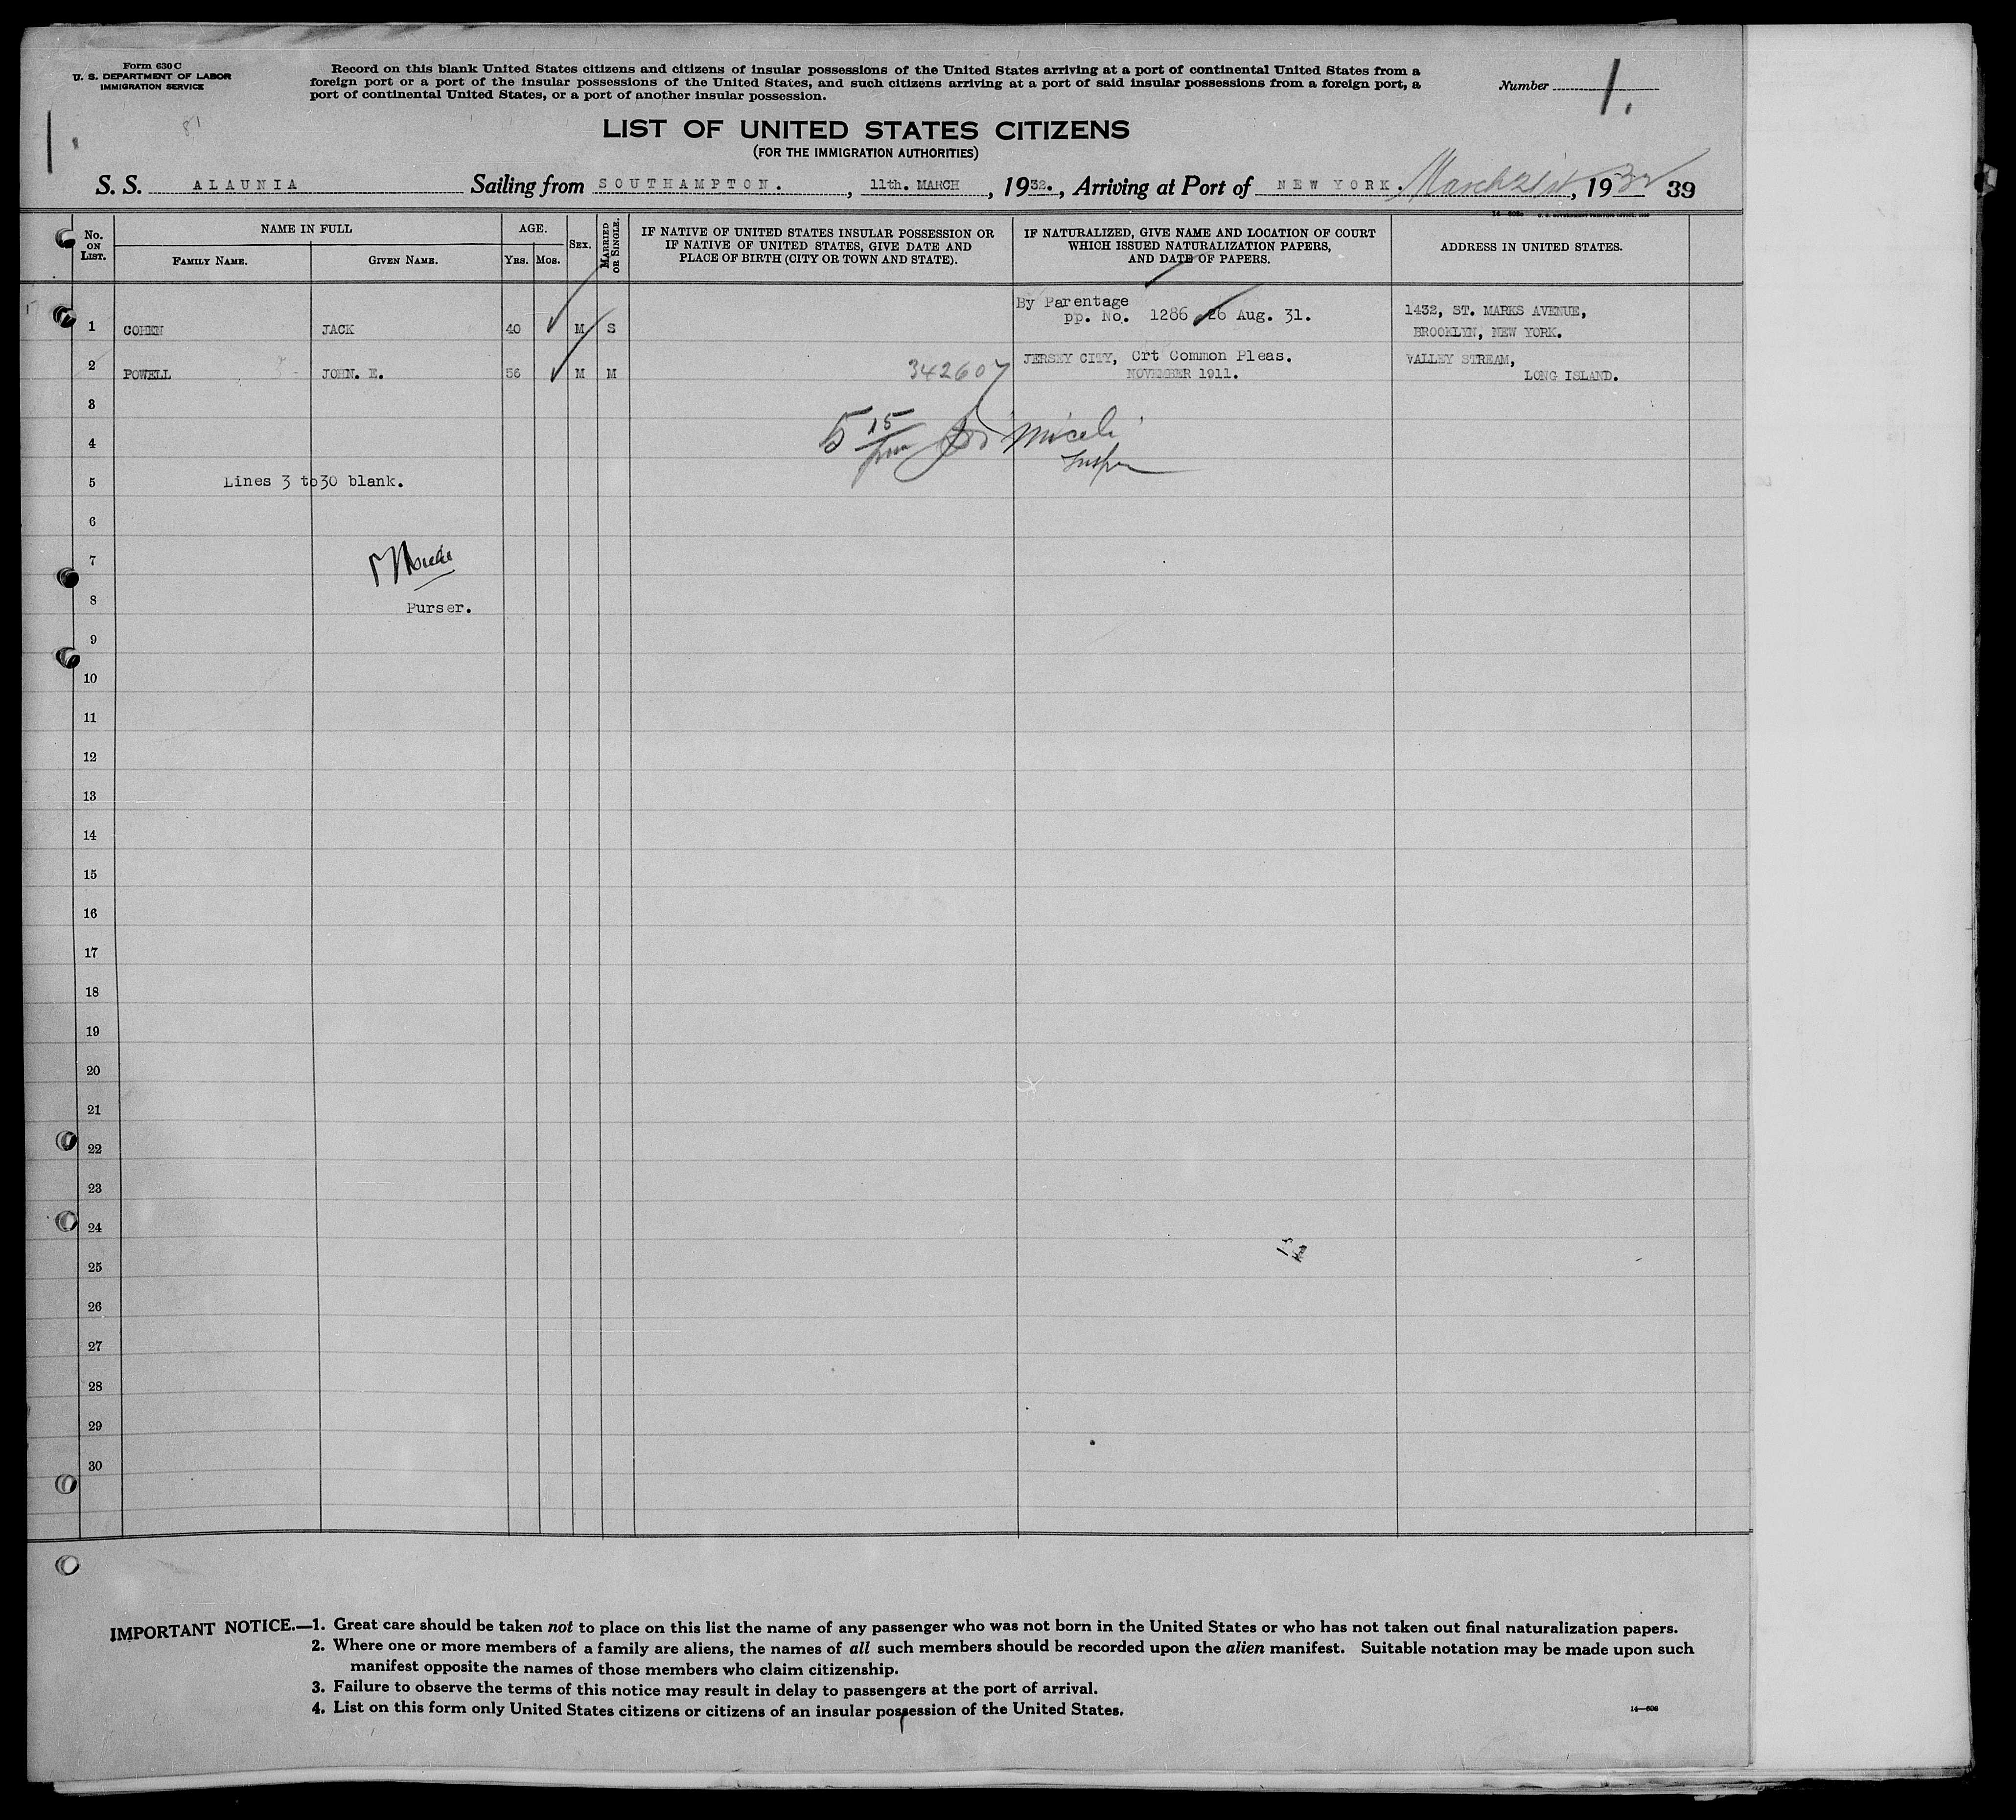 Form 630 C
U. S. DEPARTMENT OF LABOR
IMMIGRATION SERVICE
Record on this blank United States citizens and citizens of insular possessions of the United States arriving at a port of continental United States from a
foreign port or a port of the insular possessions of the United States, and such citizens arriving at a port of said insular possessions from a foreign port, a
port of continental United States, or a port of another insular possession.
Number 1.
1.
81
LIST OF UNITED STATES CITIZENS
(FOR THE IMMIGRATION AUTHORITIES)
S. S. ALAUNIA Sailing from SOUTHAMPTON. , 11th. MARCH , 1932. , Arriving at Port of NEW YORK. March 21st , 1932 39
No. ON LIST.
NAME IN FULL
FAMILY NAME.
GIVEN NAME.
AGE.
YRS.
MOS.
SEX.
MARRIED OR SINGLE.
IF NATIVE OF UNITED STATES INSULAR POSSESSION OR
IF NATIVE OF UNITED STATES, GIVE DATE AND
PLACE OF BIRTH (CITY OR TOWN AND STATE).
IF NATURALIZED, GIVE NAME AND LOCATION OF COURT
WHICH ISSUED NATURALIZATION PAPERS,
AND DATE OF PAPERS.
ADDRESS IN UNITED STATES.
By Parentage
1 COHEN JACK 40 M S pp. No. 1286 26 Aug. 31. 1432, ST. MARKS AVENUE,
BROOKLYN, NEW YORK.
2 POWELL JOHN. E. 56 M M 342607 JERSEY CITY, Crt Common Pleas. VALLEY STREAM,
NOVEMBER 1911. LONG ISLAND.
3
4 5 15 pm Miceli
Inspr
5 Lines 3 to 30 blank.
6
7
8 Purser.
9
10
11
12
13
14
15
16
17
18
19
20
21
22
23
24
25
26
27
28
29
30
IMPORTANT NOTICE.—1. Great care should be taken not to place on this list the name of any passenger who was not born in the United States or who has not taken out final naturalization papers.
2. Where one or more members of a family are aliens, the names of all such members should be recorded upon the alien manifest. Suitable notation may be made upon such
manifest opposite the names of those members who claim citizenship.
3. Failure to observe the terms of this notice may result in delay to passengers at the port of arrival.
4. List on this form only United States citizens or citizens of an insular possession of the United States.
14—608